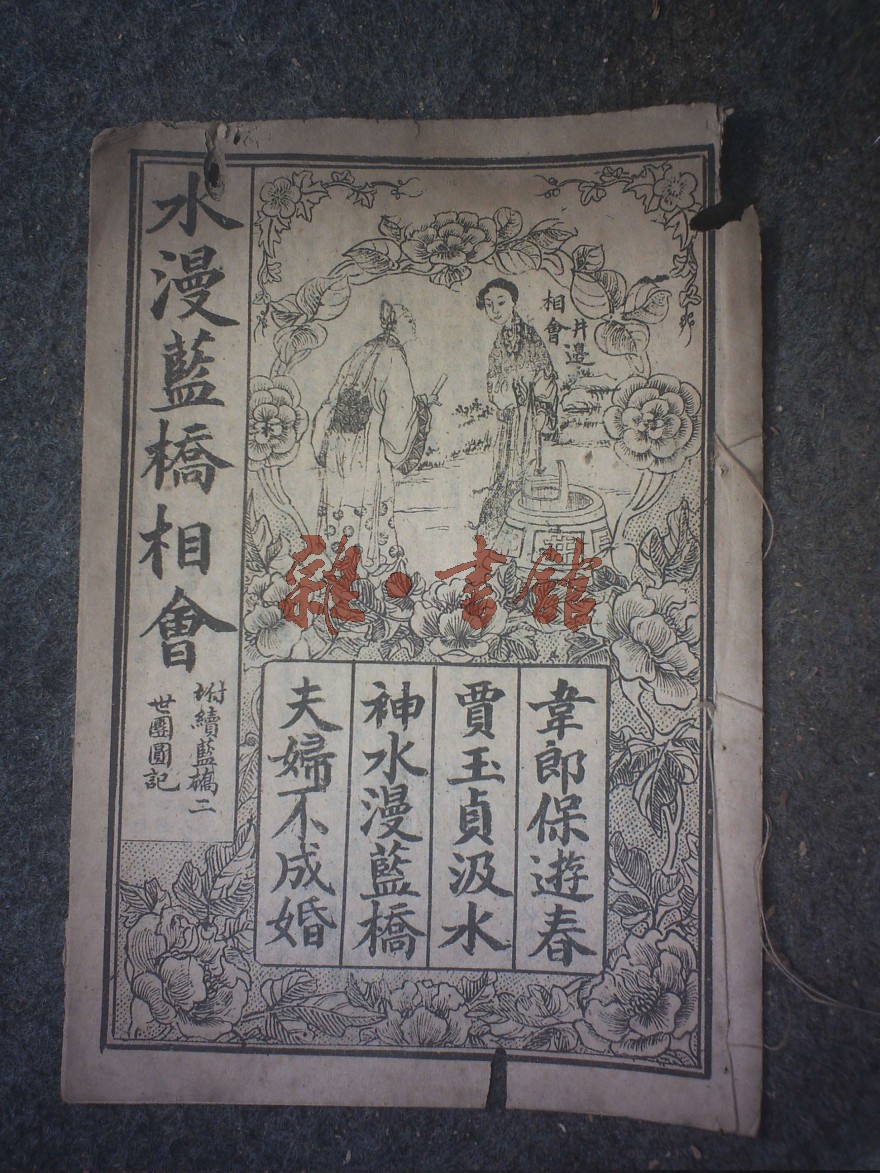 水漫藍橋相會
附續藍橋二
世團圓記
井邊
相會
韋郎保遊春
賈玉貞汲水
神水漫藍橋
夫婦不成婚
雜·書館